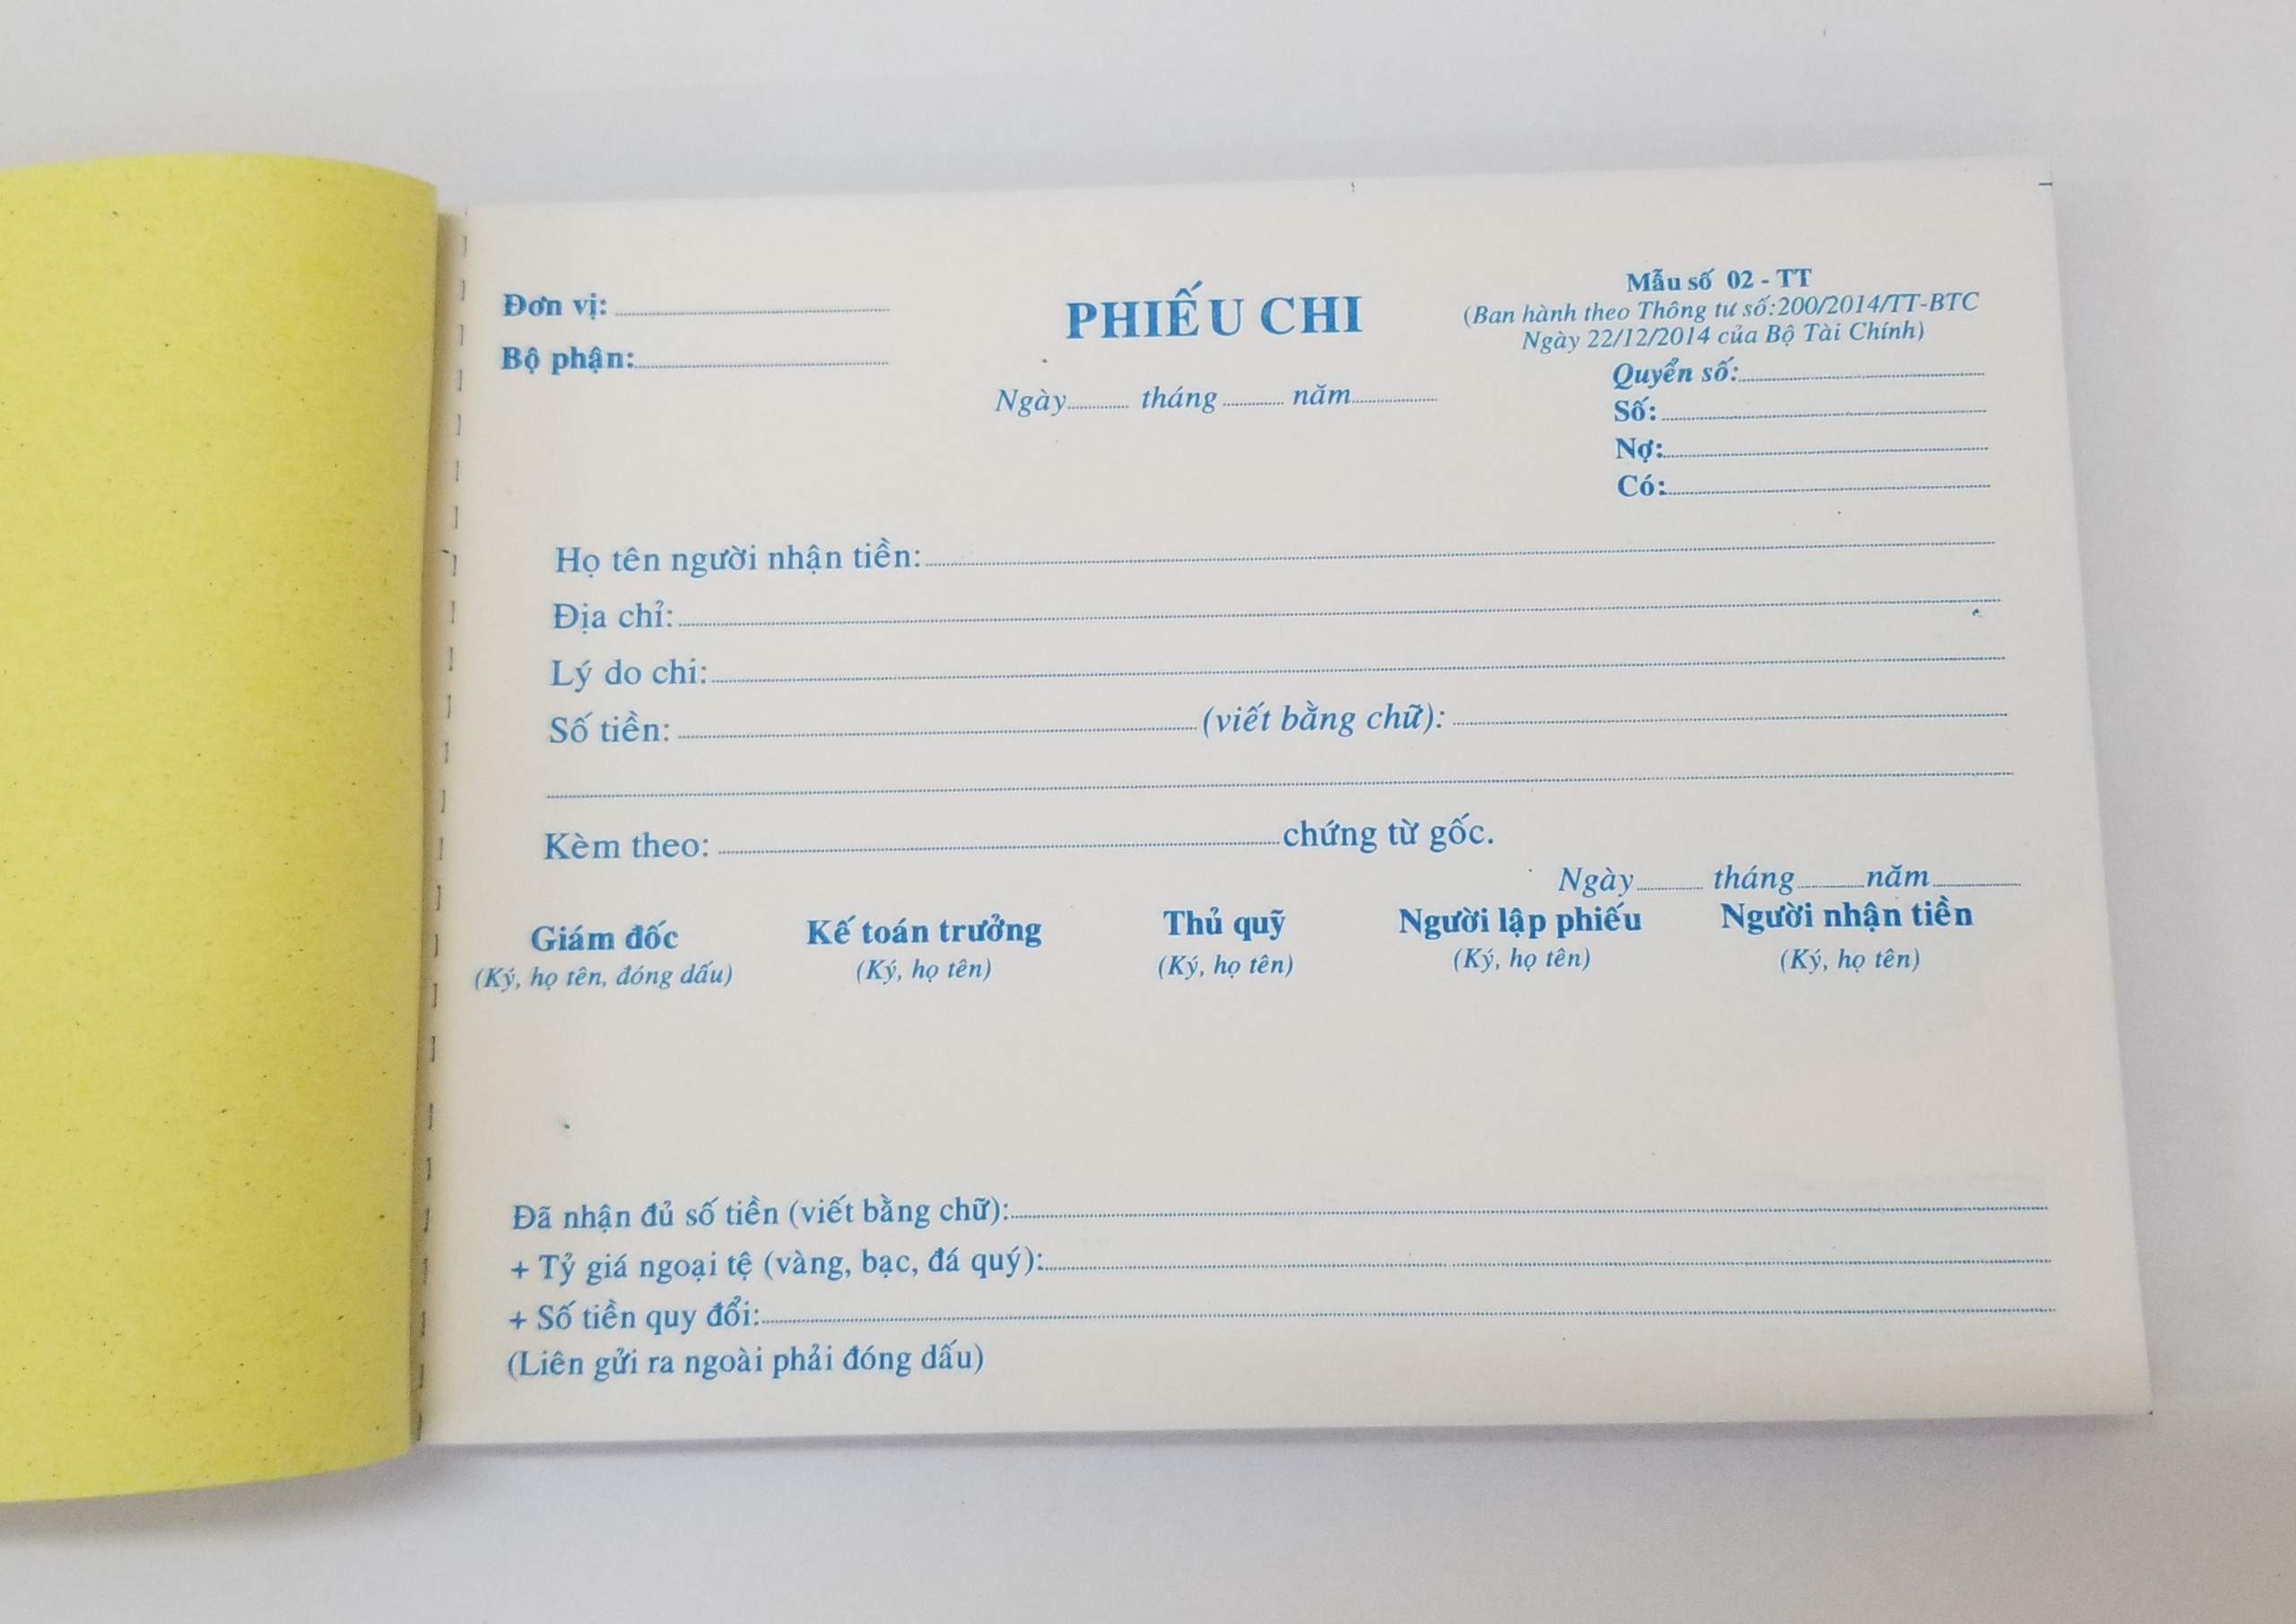 Đơn vị:
Bộ phận:
PHIẾU CHI
Ngày tháng năm
Mẫu số 02 - TT
(Ban hành theo Thông tư số:200/2014/TT-BTC
Ngày 22/12/2014 của Bộ Tài Chính)
Quyển số:
Số:
Nợ:
Có:
Họ tên người nhận tiền:
Địa chỉ:
Lý do chi:
Số tiền: (viết bằng chữ):
Kèm theo: chứng từ gốc.
Ngày tháng năm
Giám đốc Kế toán trưởng Thủ quỹ Người lập phiếu Người nhận tiền
(Ký, họ tên, đóng dấu) (Ký, họ tên) (Ký, họ tên) (Ký, họ tên) (Ký, họ tên)
Đã nhận đủ số tiền (viết bằng chữ):
+ Tỷ giá ngoại tệ (vàng, bạc, đá quý):
+ Số tiền quy đổi:
(Liên gửi ra ngoài phải đóng dấu)